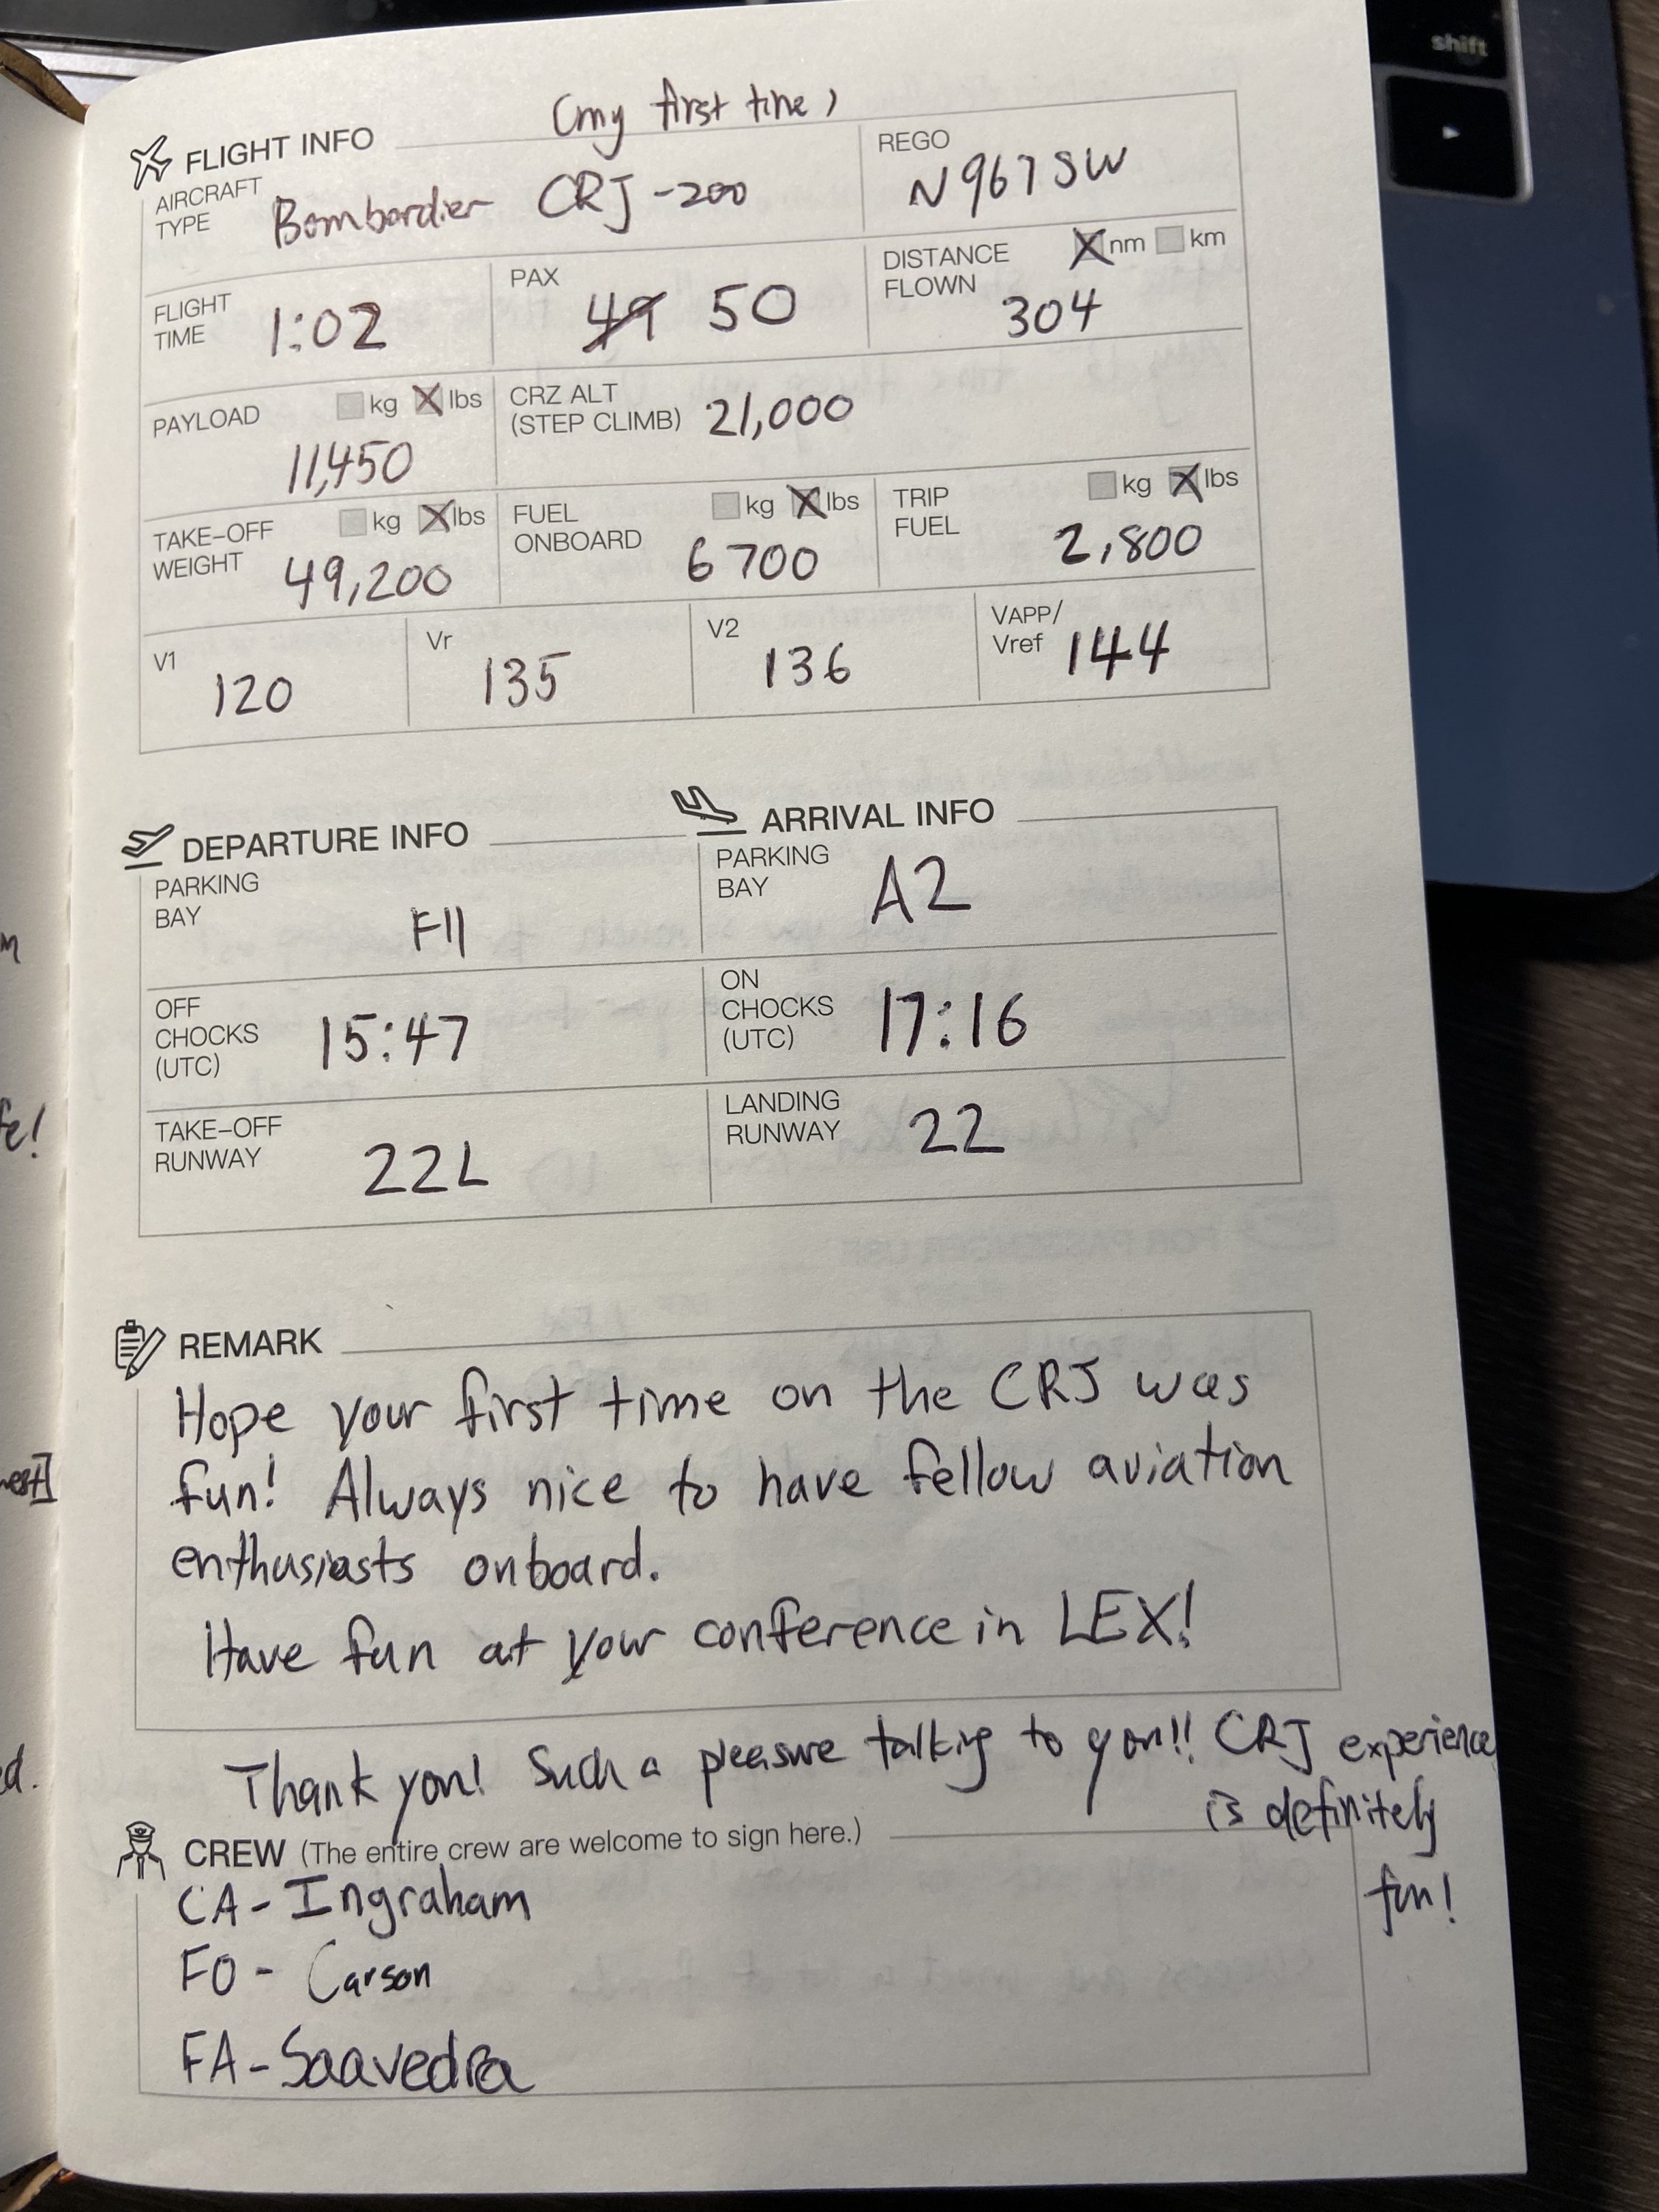 shift
(my first time)
FLIGHT INFO
AIRCRAFT TYPE Bombardier CRJ-200
REGO N967SW
FLIGHT TIME 1:02
PAX 49 50
DISTANCE FLOWN X nm km
304
PAYLOAD kg X lbs
11,450
CRZ ALT (STEP CLIMB) 21,000
TAKE-OFF WEIGHT kg X lbs
49,200
FUEL ONBOARD kg X lbs
6700
TRIP FUEL kg X lbs
2,800
V1 120
Vr 135
V2 136
VAPP/ Vref 144
DEPARTURE INFO
ARRIVAL INFO
PARKING BAY F11
PARKING BAY A2
OFF CHOCKS (UTC) 15:47
ON CHOCKS (UTC) 17:16
TAKE-OFF RUNWAY 22L
LANDING RUNWAY 22
REMARK
Hope your first time on the CRJ was
fun! Always nice to have fellow aviation
enthusiasts onboard.
Have fun at your conference in LEX!
Thank you! Such a pleasure talking to you!! CRJ experience
is definitely
fun!
CREW (The entire crew are welcome to sign here.)
CA - Ingraham
FO - Carson
FA - Saavedra